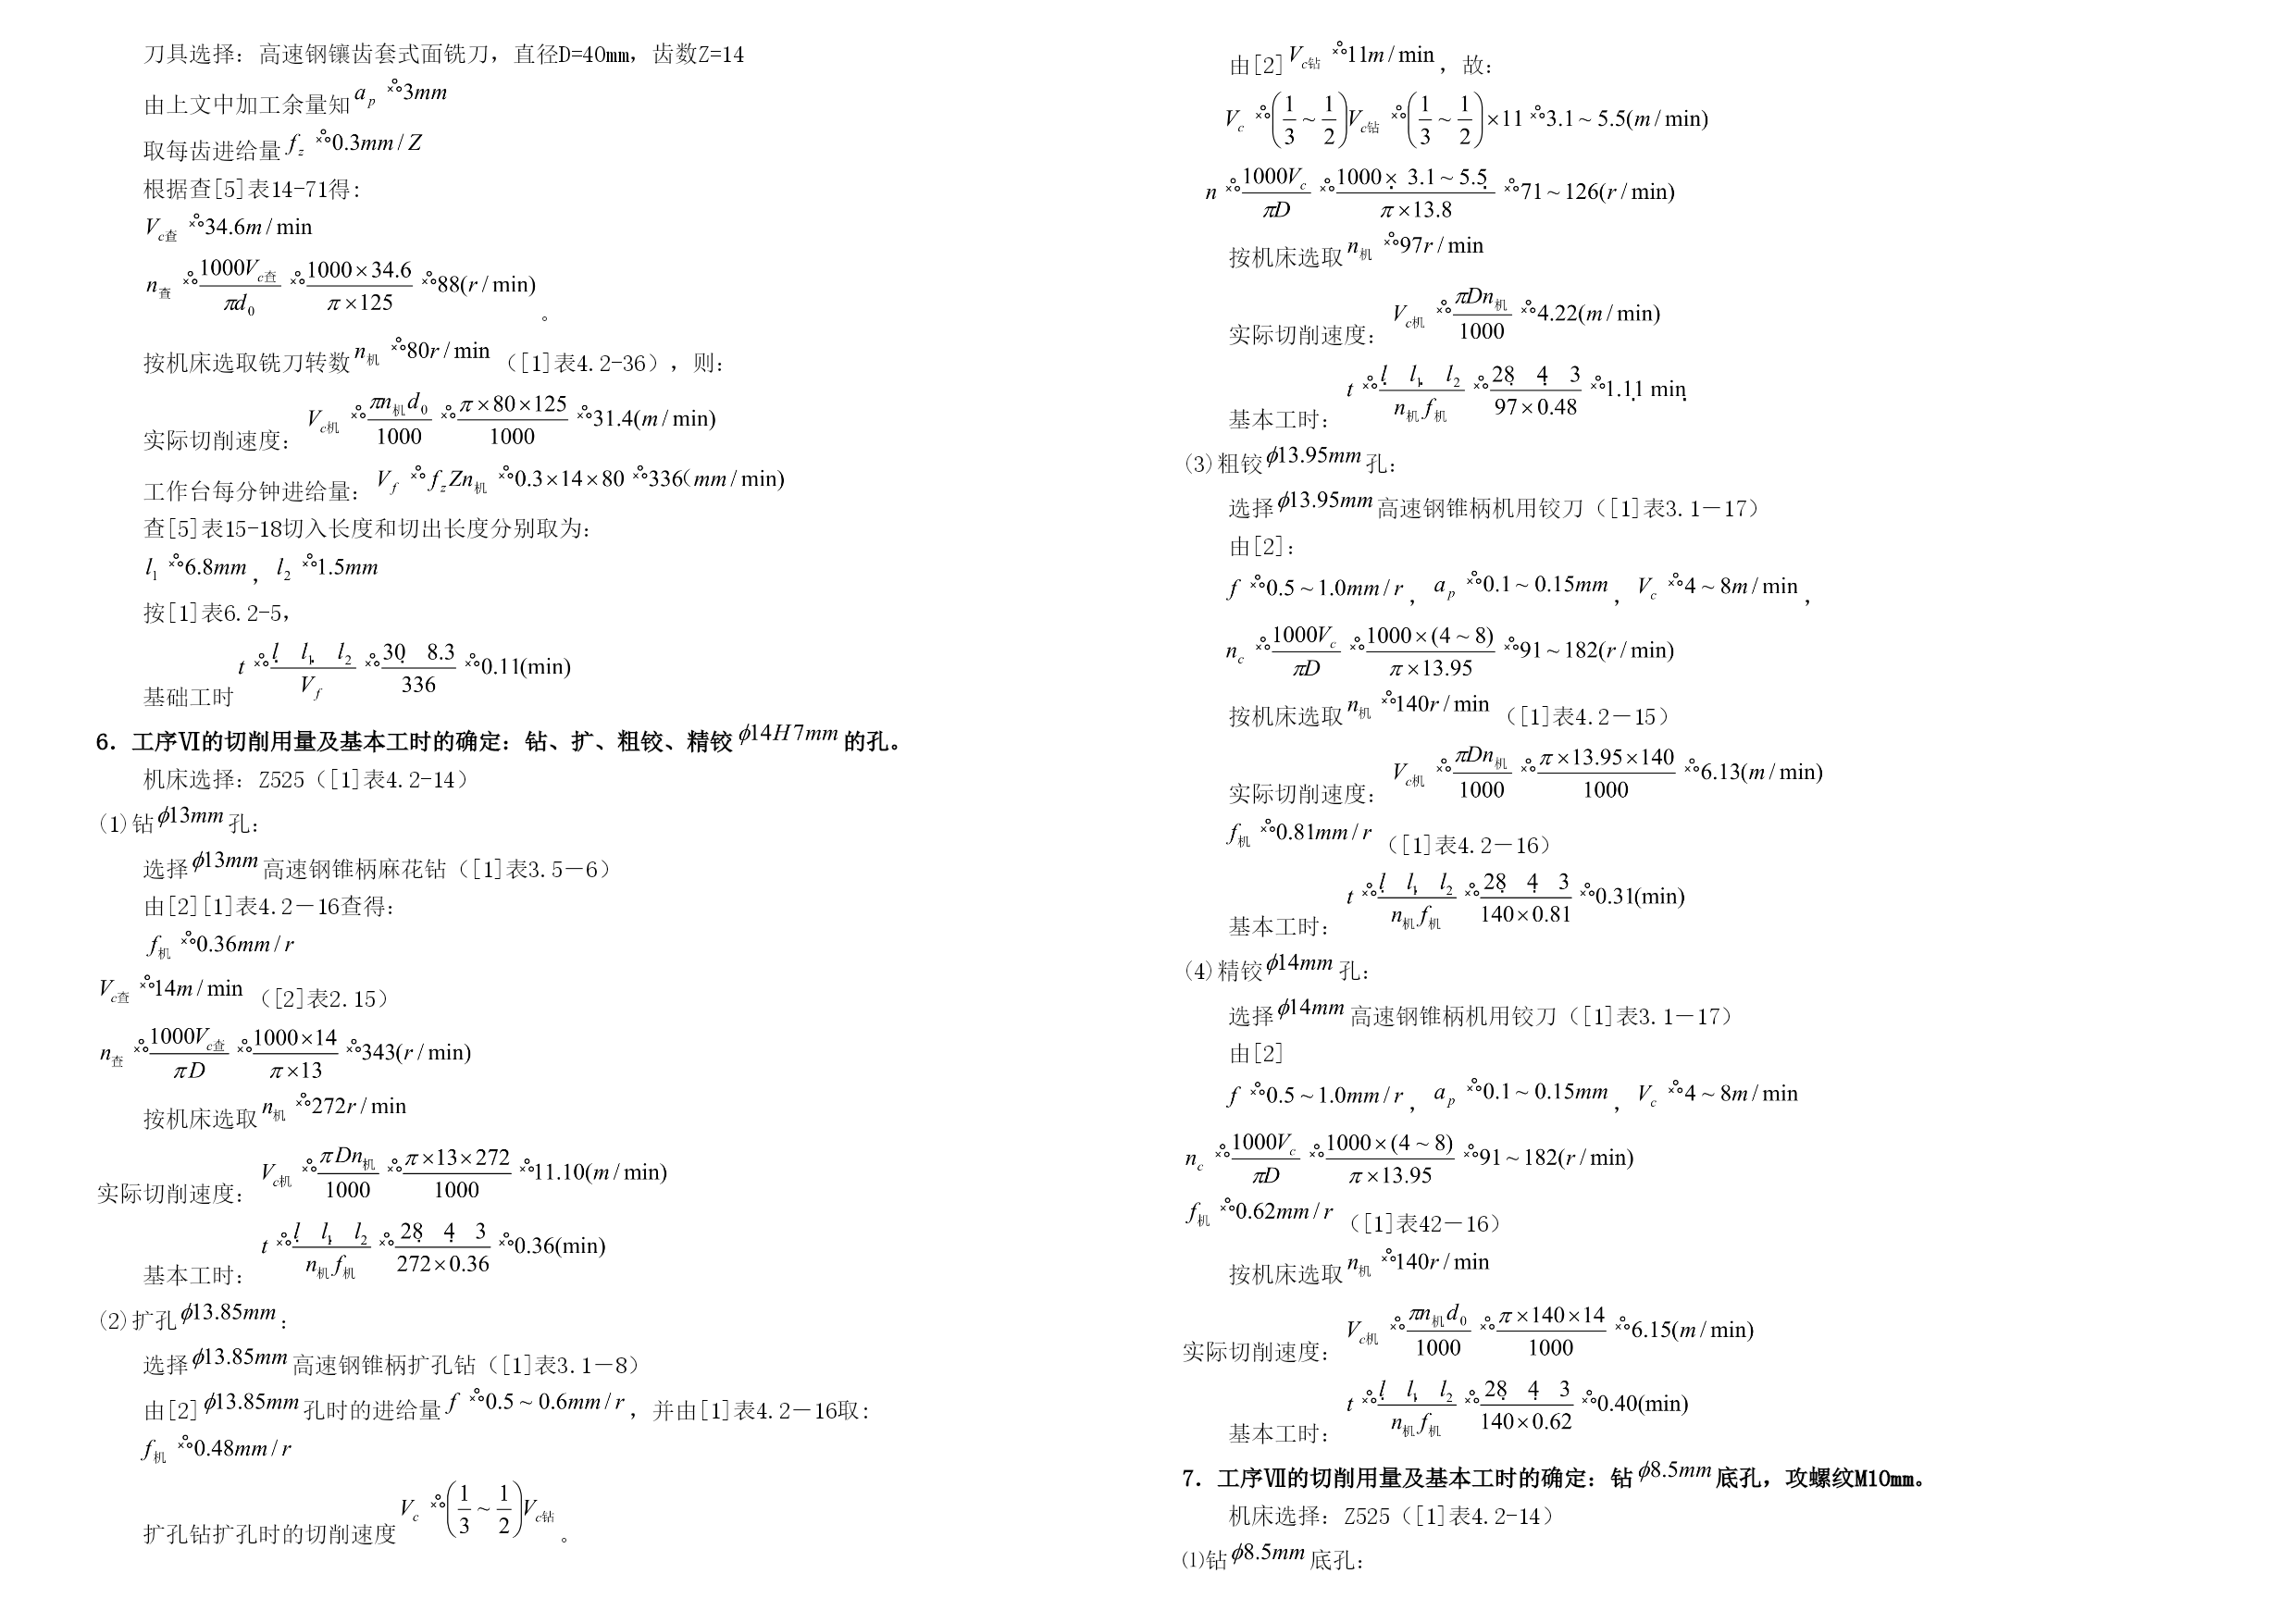 刀具选择：高速钢镶齿套式面铣刀，直径D=40mm，齿数Z=14
由上文中加工余量知 a_p = 3mm
取每齿进给量 f_z = 0.3mm/Z
根据查[5]表14-71得：
V_c查 = 34.6m/min
n_查 = 1000V_c查/πd_0 = 1000×34.6/π×125 = 88(r/min)。
按机床选取铣刀转数 n_机 = 80r/min（[1]表4.2-36），则：
实际切削速度：V_c机 = πn_机d_0/1000 = π×80×125/1000 = 31.4(m/min)
工作台每分钟进给量：V_f = f_zZn_机 = 0.3×14×80 = 336(mm/min)
查[5]表15-18切入长度和切出长度分别取为：
l_1 = 6.8mm，l_2 = 1.5mm
按[1]表6.2-5，
基础工时 t = l l_1 l_2/V_f = 30 8.3/336 = 0.11(min)
6．工序Ⅵ的切削用量及基本工时的确定：钻、扩、粗铰、精铰 φ14H7mm 的孔。
机床选择：Z525（[1]表4.2-14）
(1)钻 φ13mm 孔：
选择 φ13mm 高速钢锥柄麻花钻（[1]表3.5－6）
由[2][1]表4.2－16查得：
f_机 = 0.36mm/r
V_c查 = 14m/min（[2]表2.15）
n_查 = 1000V_c查/πD = 1000×14/π×13 = 343(r/min)
按机床选取 n_机 = 272r/min
实际切削速度：V_c机 = πDn_机/1000 = π×13×272/1000 = 11.10(m/min)
基本工时：t = l l_1 l_2/n_机f_机 = 28 4 3/272×0.36 = 0.36(min)
(2)扩孔 φ13.85mm：
选择 φ13.85mm 高速钢锥柄扩孔钻（[1]表3.1－8）
由[2] φ13.85mm 孔时的进给量 f = 0.5~0.6mm/r，并由[1]表4.2－16取：
f_机 = 0.48mm/r
扩孔钻扩孔时的切削速度 V_c = (1/3 ~ 1/2)V_c钻。
由[2] V_c钻 = 11m/min，故：
V_c = (1/3 ~ 1/2)V_c钻 = (1/3 ~ 1/2)×11 = 3.1~5.5(m/min)
n = 1000V_c/πD = 1000× 3.1~5.5/π×13.8 = 71~126(r/min)
按机床选取 n_机 = 97r/min
实际切削速度：V_c机 = πDn_机/1000 = 4.22(m/min)
基本工时：t = l l_1 l_2/n_机f_机 = 28 4 3/97×0.48 = 1.11 min
(3)粗铰 φ13.95mm 孔：
选择 φ13.95mm 高速钢锥柄机用铰刀（[1]表3.1－17）
由[2]：
f = 0.5~1.0mm/r，a_p = 0.1~0.15mm，V_c = 4~8m/min，
n_c = 1000V_c/πD = 1000×(4~8)/π×13.95 = 91~182(r/min)
按机床选取 n_机 = 140r/min（[1]表4.2－15）
实际切削速度：V_c机 = πDn_机/1000 = π×13.95×140/1000 = 6.13(m/min)
f_机 = 0.81mm/r（[1]表4.2－16）
基本工时：t = l l_1 l_2/n_机f_机 = 28 4 3/140×0.81 = 0.31(min)
(4)精铰 φ14mm 孔：
选择 φ14mm 高速钢锥柄机用铰刀（[1]表3.1－17）
由[2]
f = 0.5~1.0mm/r，a_p = 0.1~0.15mm，V_c = 4~8m/min
n_c = 1000V_c/πD = 1000×(4~8)/π×13.95 = 91~182(r/min)
f_机 = 0.62mm/r（[1]表42－16）
按机床选取 n_机 = 140r/min
实际切削速度：V_c机 = πn_机d_0/1000 = π×140×14/1000 = 6.15(m/min)
基本工时：t = l l_1 l_2/n_机f_机 = 28 4 3/140×0.62 = 0.40(min)
7．工序Ⅶ的切削用量及基本工时的确定：钻 φ8.5mm 底孔，攻螺纹M10mm。
机床选择：Z525（[1]表4.2-14）
⑴钻 φ8.5mm 底孔：